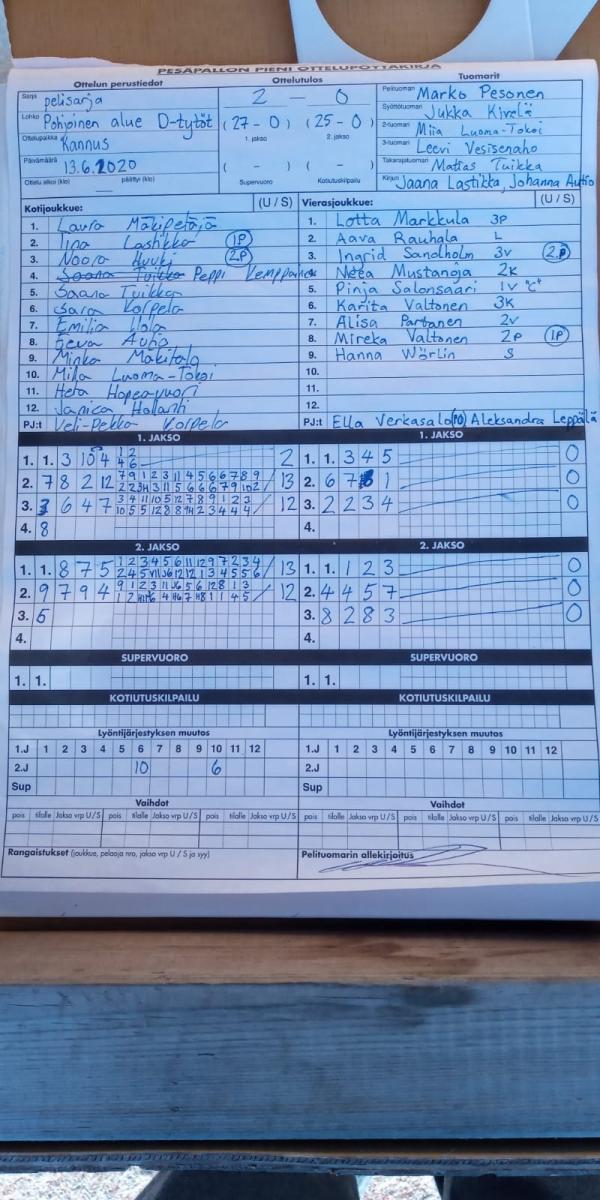 PESÄPALLON PIENI OTTELUPÖYTÄKIRJA
Ottelun perustiedot
Ottelutulos
Tuomarit
Sarja pelisarja
Lohko Pohjoinen alue D-tytöt
Ottelupaikka Kannus
Päivämäärä 13.6.2020
Ottelu alkoi (klo) päättyi (klo)
2 – 0
(27 - 0) (25 - 0)
1. jakso 2. jakso
( - ) ( - )
Supervuoro Kotiutuskilpailu
Pelituomari Marko Pesonen
Syöttötuomari Jukka Kivelä
2-tuomari Miia Luoma-Tokoi
3-tuomari Leevi Vesisenaho
Takarajatuomari Matias Tuikka
Kirjuri Jaana Lastikka, Johanna Autio
Kotijoukkue: (U / S)
1. Laura Mäkipetäjä
2. Iina Lastikka 1P
3. Noora Huuki 2P
4. Saana Tuikka Peppi Kemppainen
5. Saana Tuikka
6. Sara Korpela
7. Emilia
8. Eeva Autio
9. Minka Mäkitalo
10. Milla Luoma-Tokoi
11. Heta Hopeavuori
12. Janica Hollanti
PJ:t Veli-Pekka Korpela
Vierasjoukkue: (U / S)
1. Lotta Markkula 3P
2. Aava Rauhala L
3. Ingrid Sandholm 3V 2.P
4. Neea Mustanoja 2K
5. Pinja Salonsaari 1V "C"
6. Karita Valtonen 3K
7. Alisa Partanen 2V
8. Mireka Valtonen 2P 1P
9. Hanna Wörlin S
10.
11.
12.
PJ:t Ella Verkasalo (10) Aleksandra Leppälä
1. JAKSO
1. 1. 3 10 4 1 2 2
4 6
2. 7 8 2 12 7 9 1 2 3 11 4 5 6 6 7 8 9 / 13
3. 6 4 7 3 4 11 10 5 12 7 8 9 1 2 3 / 12
4. 8
1. JAKSO
1. 1. 3 4 5 0
2. 6 7 8 1 0
3. 2 2 3 4 0
4.
2. JAKSO
1. 1. 8 7 5 1 2 3 4 5 6 11 12 9 7 2 3 4 / 13
2. 9 7 9 4 / 12
3. 6
4.
2. JAKSO
1. 1. 1 2 3 0
2. 4 4 5 7 0
3. 8 2 8 3 0
4.
SUPERVUORO
1. 1.
SUPERVUORO
1. 1.
KOTIUTUSKILPAILU
KOTIUTUSKILPAILU
Lyöntijärjestyksen muutos
1.J 1 2 3 4 5 6 7 8 9 10 11 12
2.J 10 6
Sup
Lyöntijärjestyksen muutos
1.J 1 2 3 4 5 6 7 8 9 10 11 12
2.J
Sup
Vaihdot
pois tilalle Jakso vrp U/S pois tilalle Jakso vrp U/S
Vaihdot
pois tilalle Jakso vrp U/S pois tilalle Jakso vrp U/S
Rangaistukset (joukkue, pelaaja nro, jakso vrp U / S ja syy)
Pelituomarin allekirjoitus